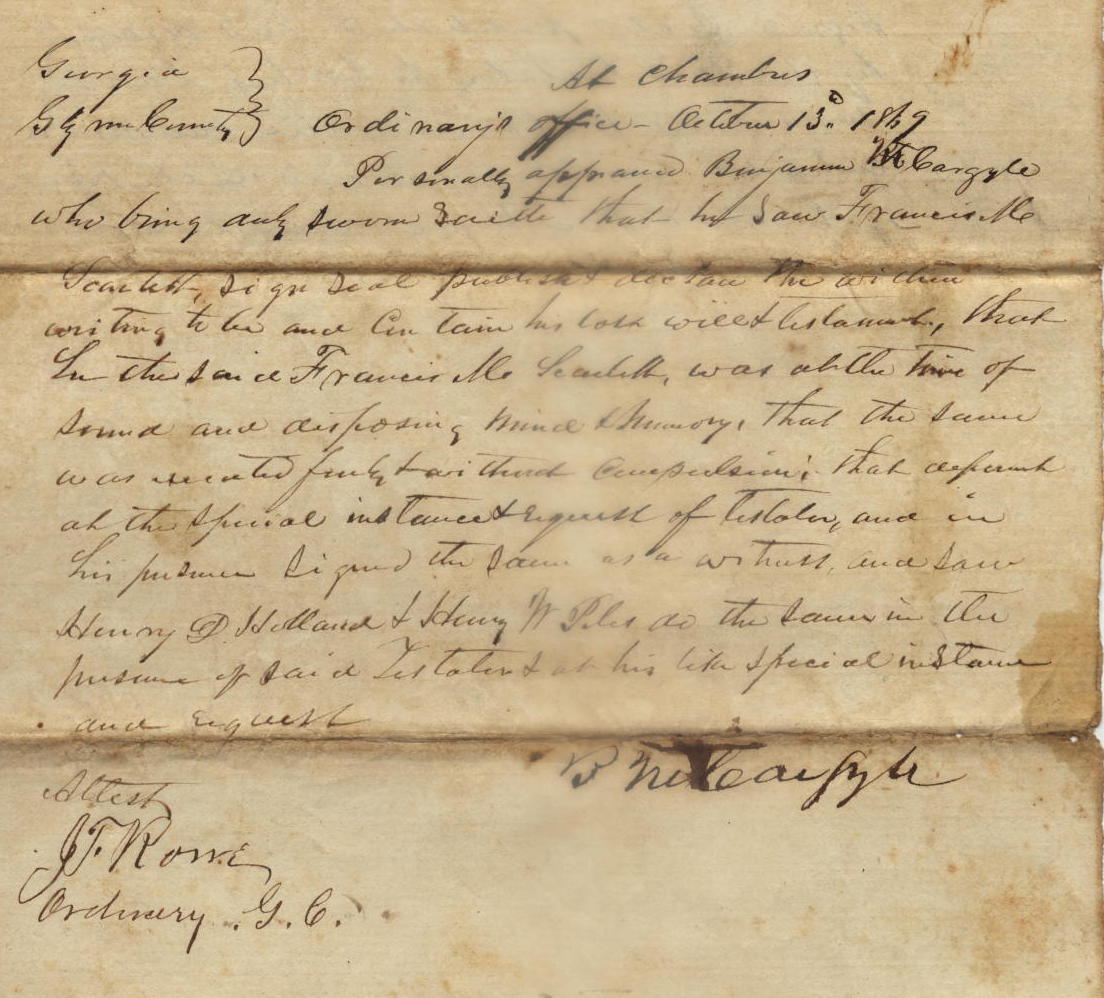 Georgia } At Chambers
Glynn County } Ordinary's office - October 13d 1869
Personally appeared Benjamin Cargyle
who being duly sworn saith that he saw Francis M
Scarlett, sign seal publish & declare the within
writing to be and contain his last will & testament, that
he the said Francis M Scarlett, was at the time of
sound and disposing mind & memory, that the same
was executed freely & without compulsion; that deponent
at the special instance & request of testator, and in
his presence signed the same as a witness, and saw
Henry D Holland & Henry W Piles do the same in the
presence of said Testator & at his like special instance
and request
B Cargyle
Attest
J. F. Rowe
Ordinary G. C.